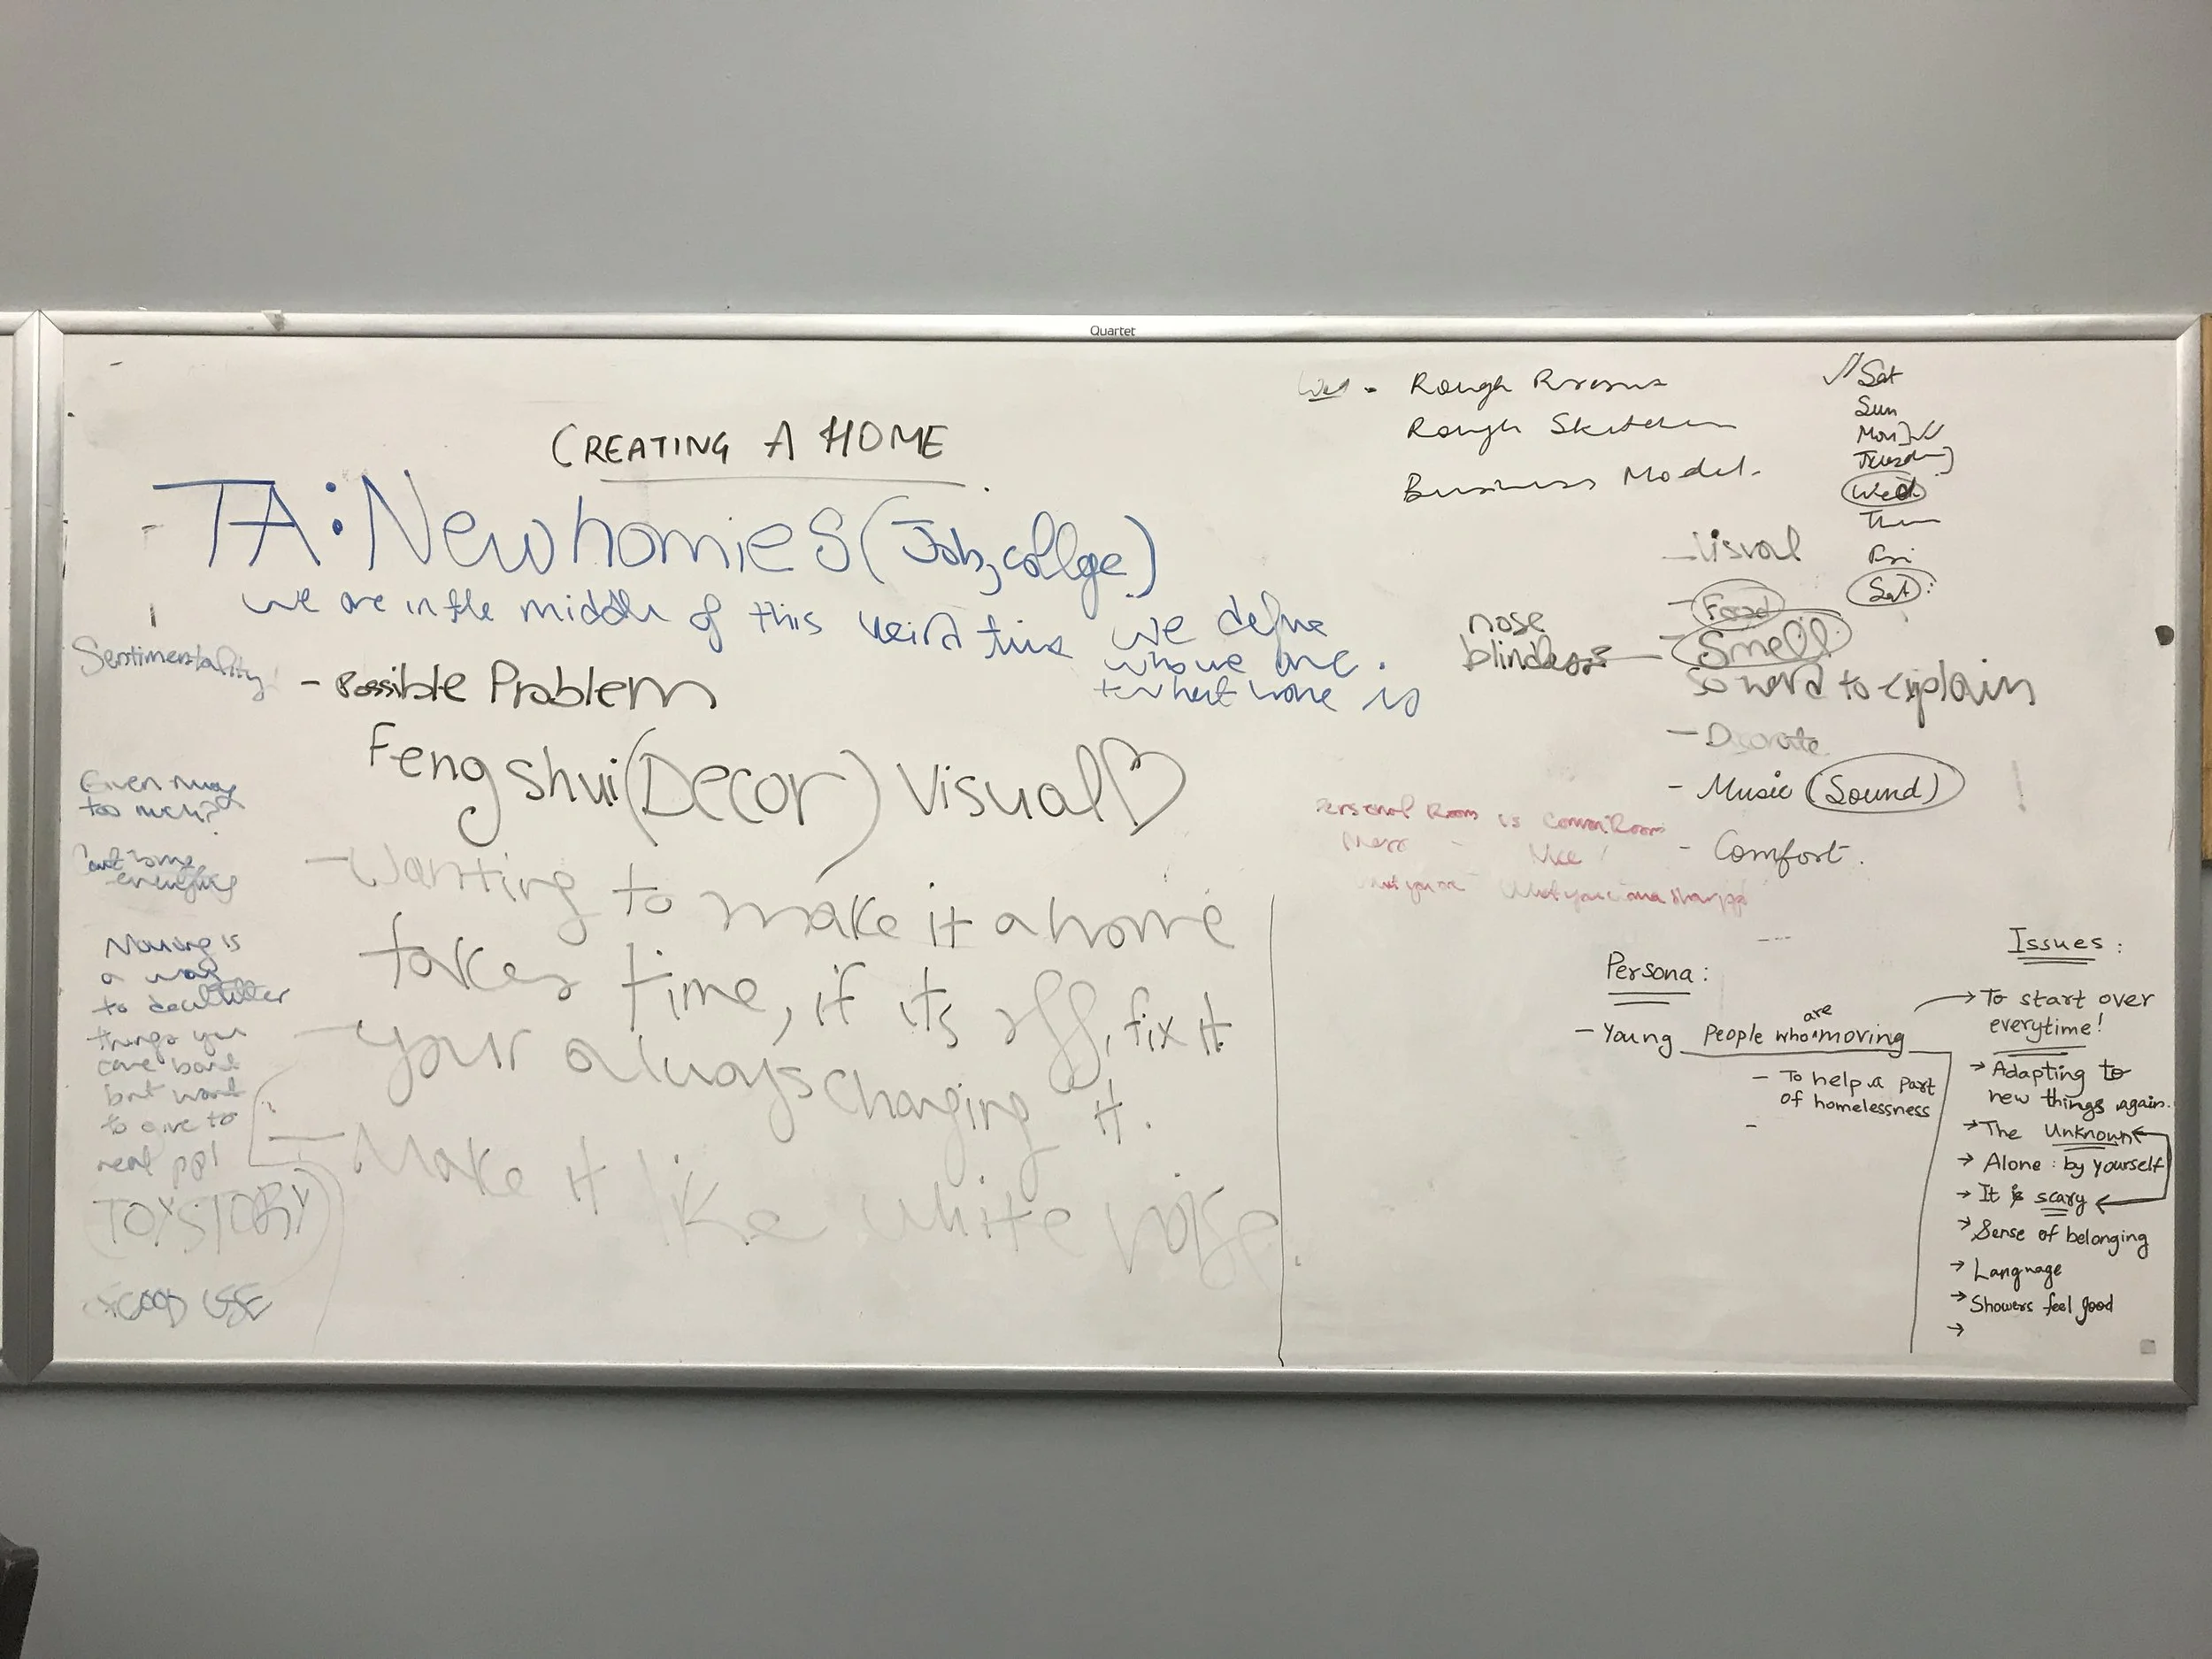 Quartet
CREATING A HOME
TA: New homies (Job, collge)
we are in the middle of this weird time we define
who we are.
+ what home is
Sentimentality
- Possible Problem
Feng shui (Decor) Visual
- Wanting to make it a home
takes time, if its off, fix it
- Your always changing it.
- Make it like white noise.
Given away
too much?
everything
Moving is
a way
to declutter
things you
care bout
but want
to give to
real ppl
TOYSTORY
GOOD USE
Wed - Rough
Rough Sketches
Business Model.
Sat
Sun
Mon
Tuesd
Wed
Thu
Fri
Sat:
- Visual
- Food
nose
blindness - Smell
so hard to explain
- Decorate
- Music (Sound)
- Comfort.
Personal Room is Common Room
Mess - Nice
What you wanna share
Persona:
- Young People who are moving
- To help a part
of homelessness
-
Issues:
→ To start over
everytime!
→ Adapting to
new things again.
→ The Unknown
→ Alone: by yourself
→ It is scary
→ Sense of belonging
→ Language
→ Showers feel good
→